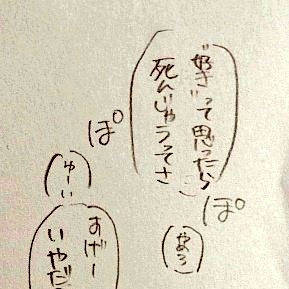 ”好き”って思ったら
死んじゃうってさ
ぽ
ぽ
やめろ
ゆーい
すげー
いやだ